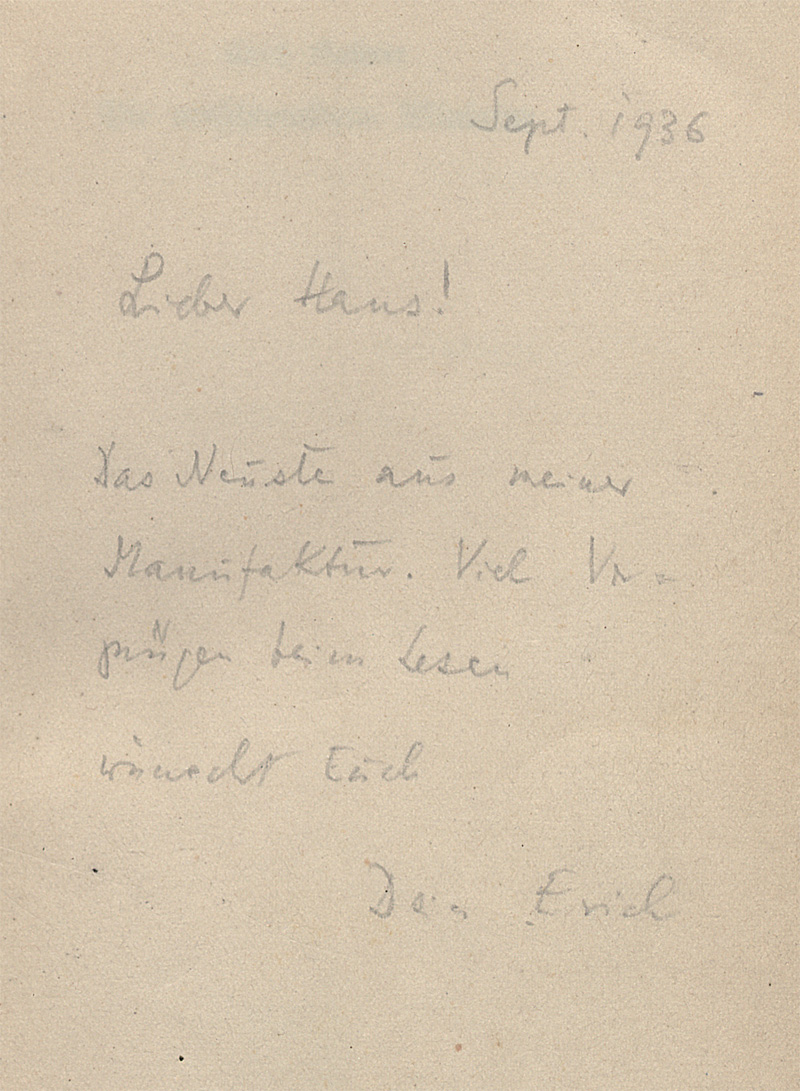 Sept. 1936
Lieber Hans!
Das Neuste aus meiner
Manufaktur. Viel Ver-
gnügen beim Lesen
wünscht Euch
Dein Erich